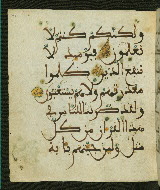 ولكنكم كنتم لا
تعلمون فيومئذ لا
تنفع الذين ظلموا
معذرتهم ولا هم يستعتبون
ولقد ضربنا للناس في
هذا القرآن من كل
مثل ولئن جئتهم بآية